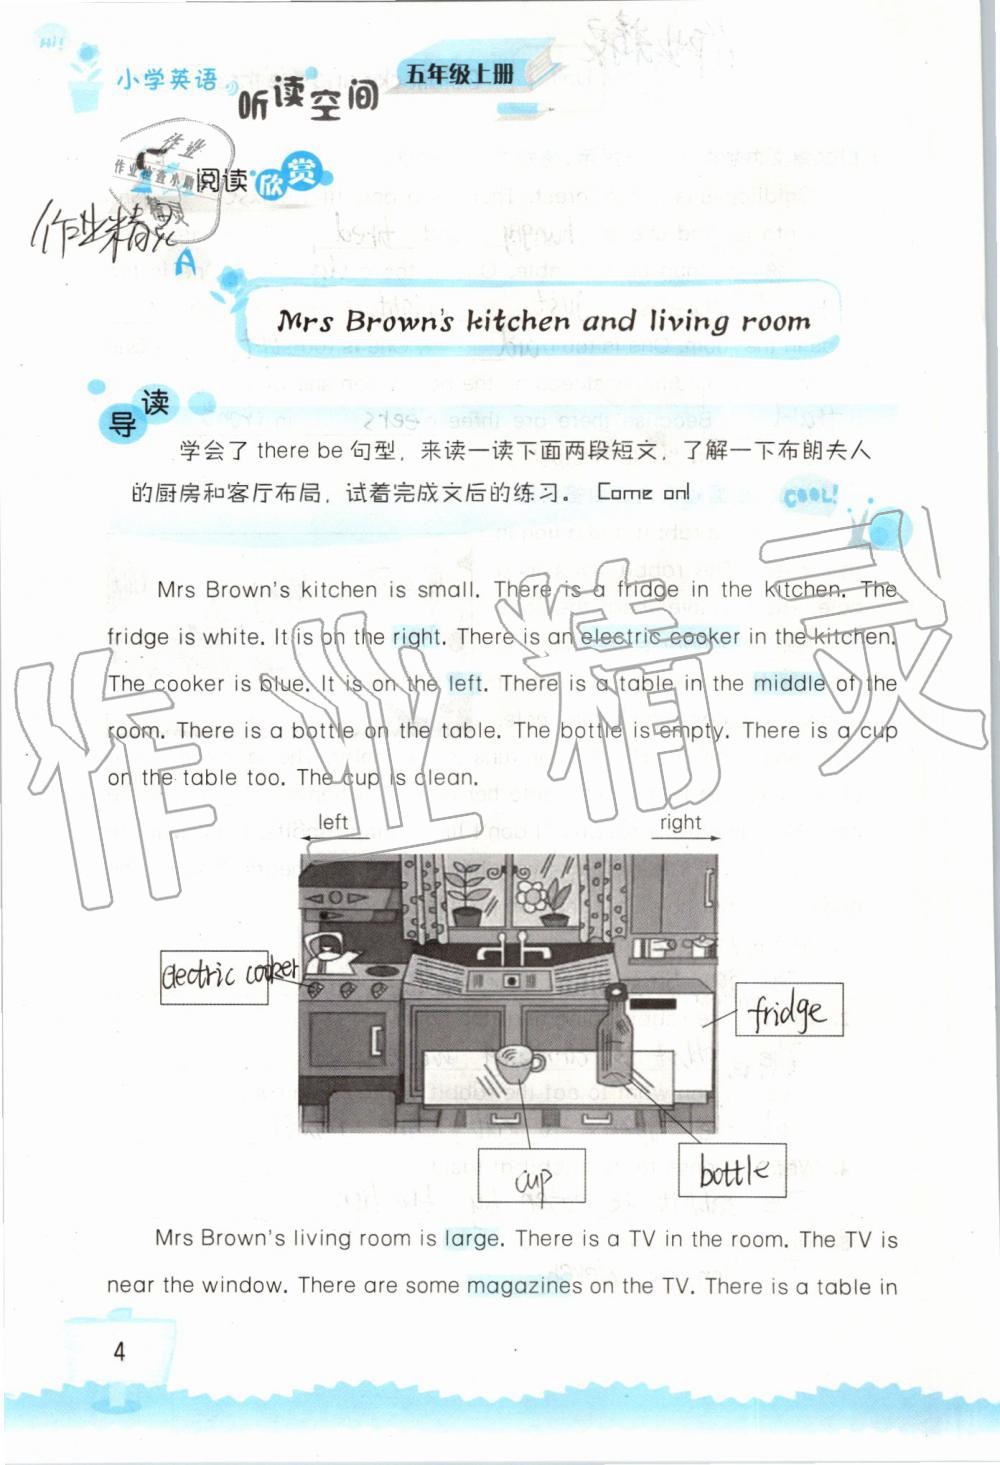 Hi!
小学英语
听读空间
五年级上册
作业
作业检查小助
精灵
阅读欣赏
作业精灵
A
Mrs Brown's kitchen and living room
导读
学会了 there be 句型，来读一读下面两段短文，了解一下布朗夫人
的厨房和客厅布局，试着完成文后的练习。 Come on!
COOL!
Mrs Brown's kitchen is small. There is a fridge in the kitchen. The
fridge is white. It is on the right. There is an electric cooker in the kitchen.
The cooker is blue. It is on the left. There is a table in the middle of the
room. There is a bottle on the table. The bottle is empty. There is a cup
on the table too. The cup is clean.
作业精灵
left right
electric cooker
fridge
cup
bottle
Mrs Brown's living room is large. There is a TV in the room. The TV is
near the window. There are some magazines on the TV. There is a table in
4